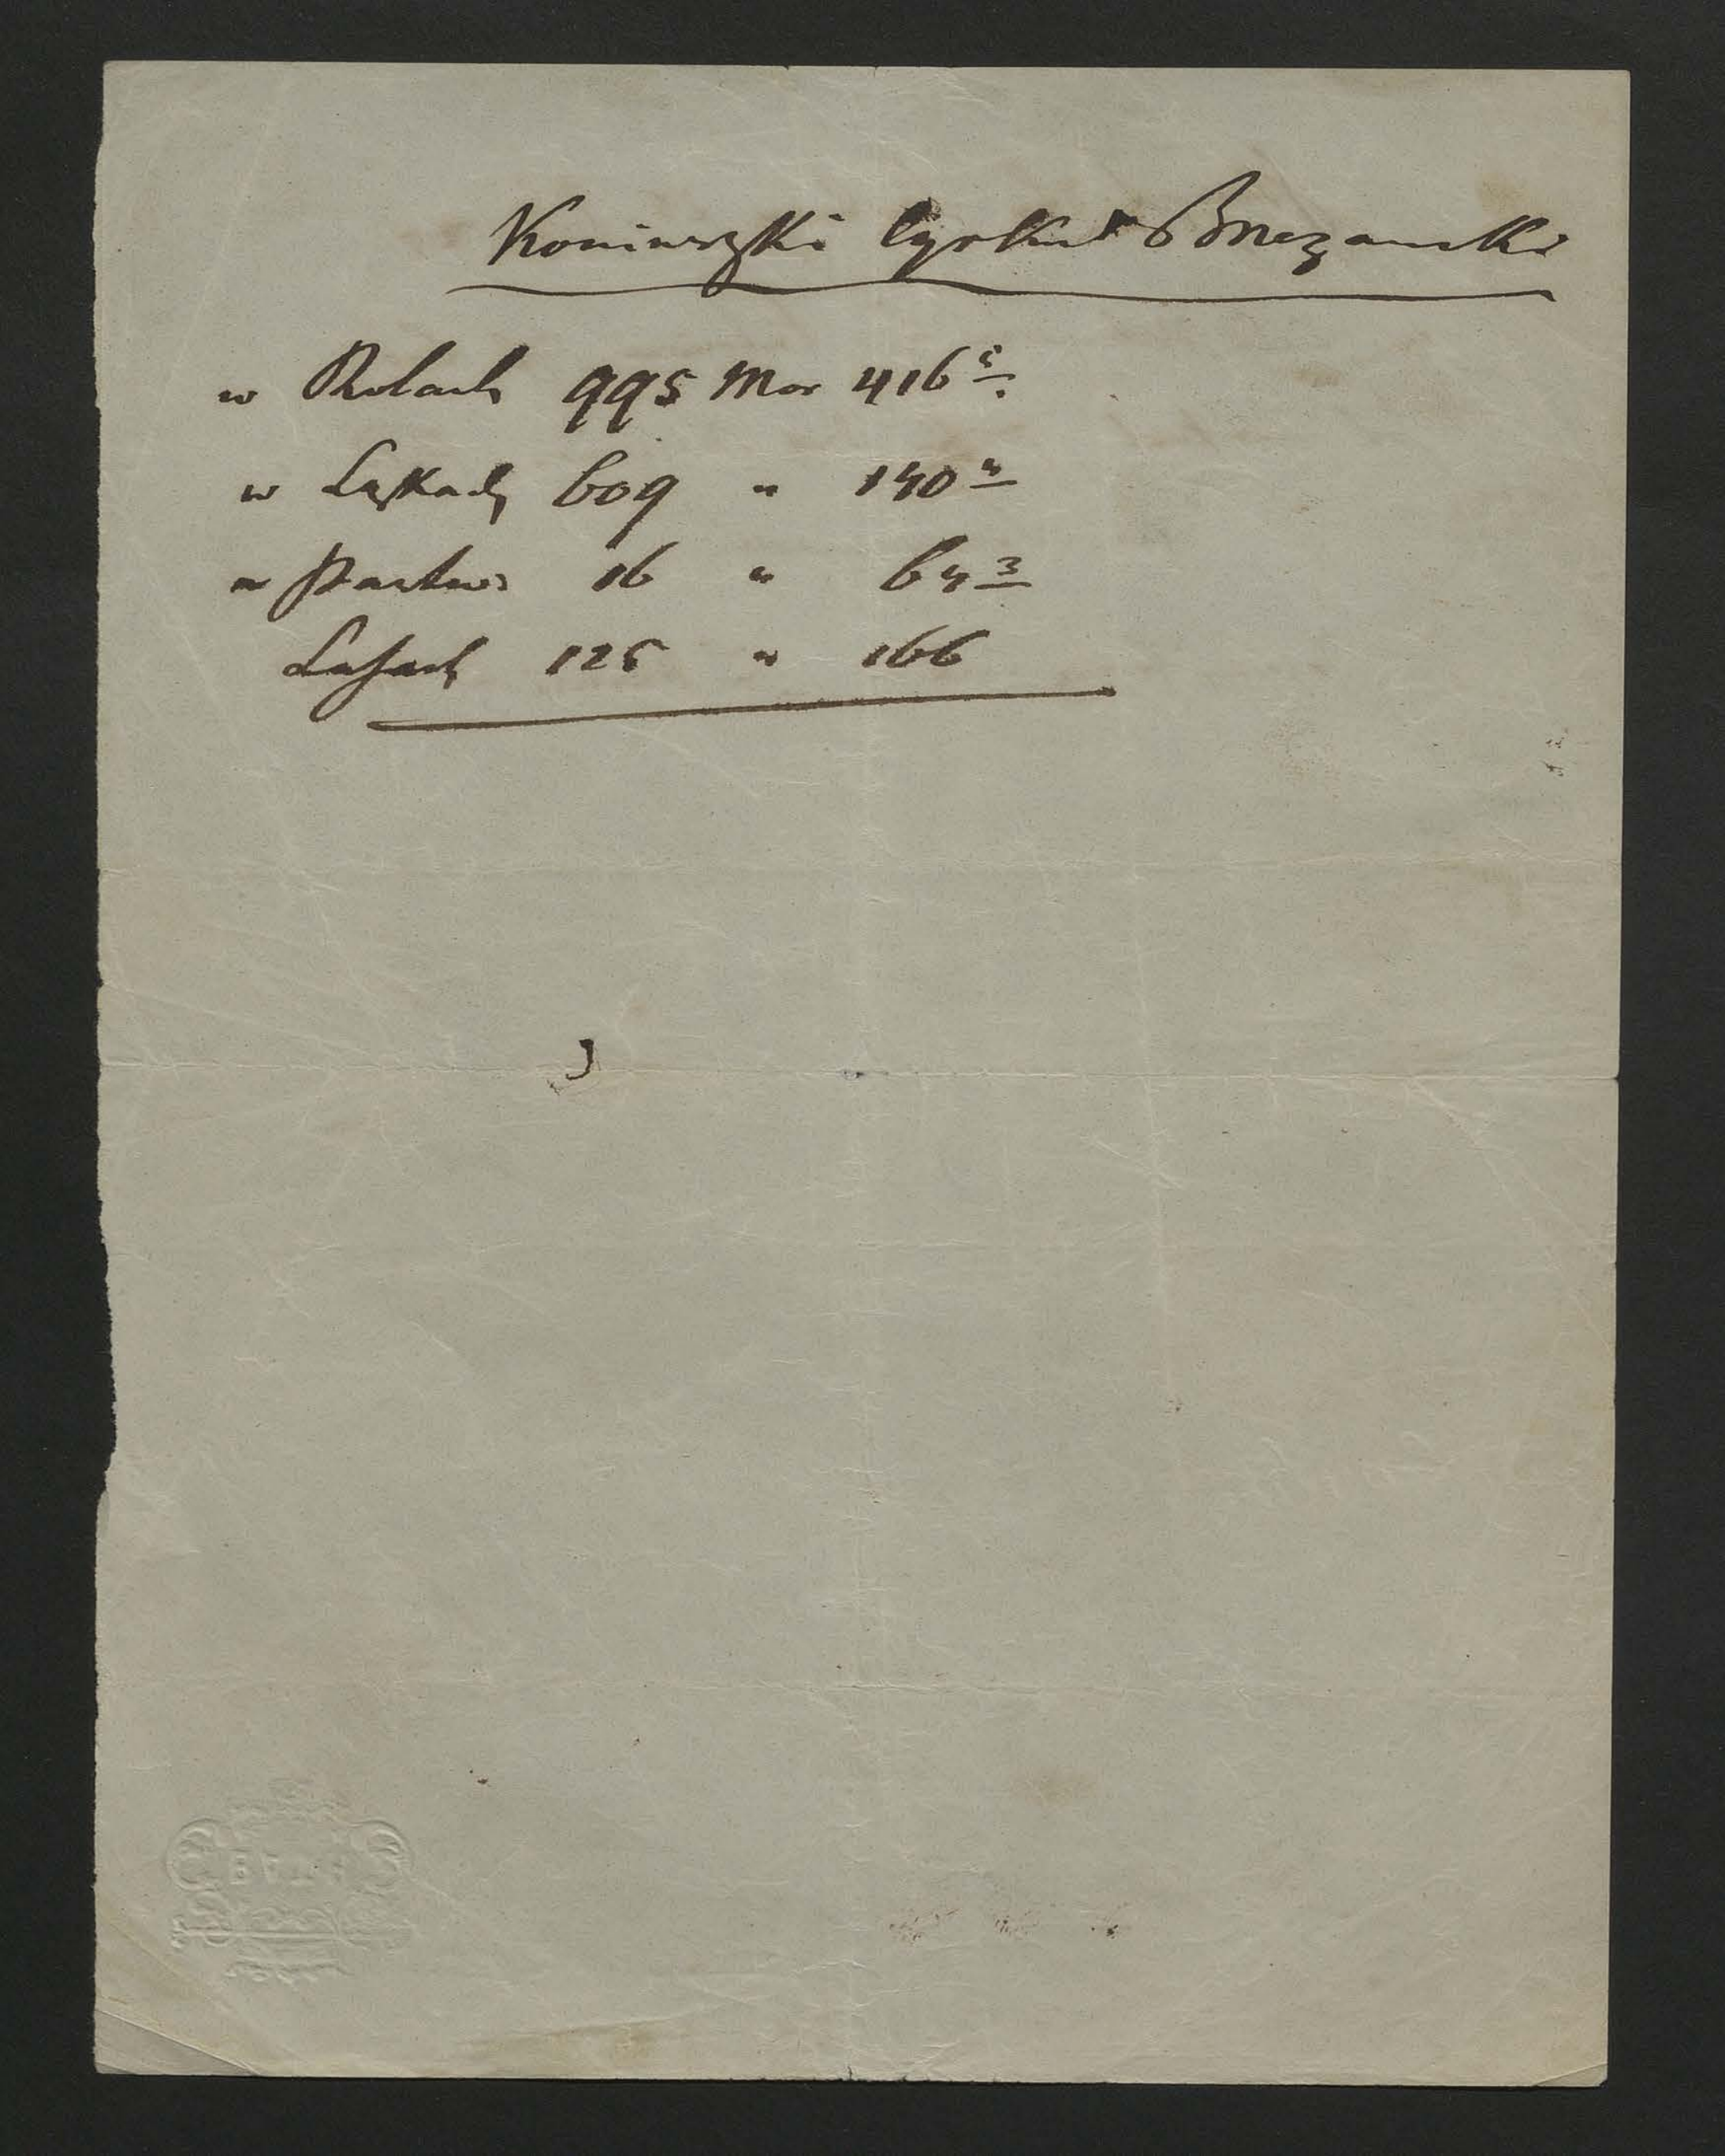 Koniuszki Cyrkuł Brzezański
w Rolach 995 Mor 416 5
w Łąkach 609 " 140 4
w Pastwi 16 " 64 3
Lasach 125 " 166
BATH